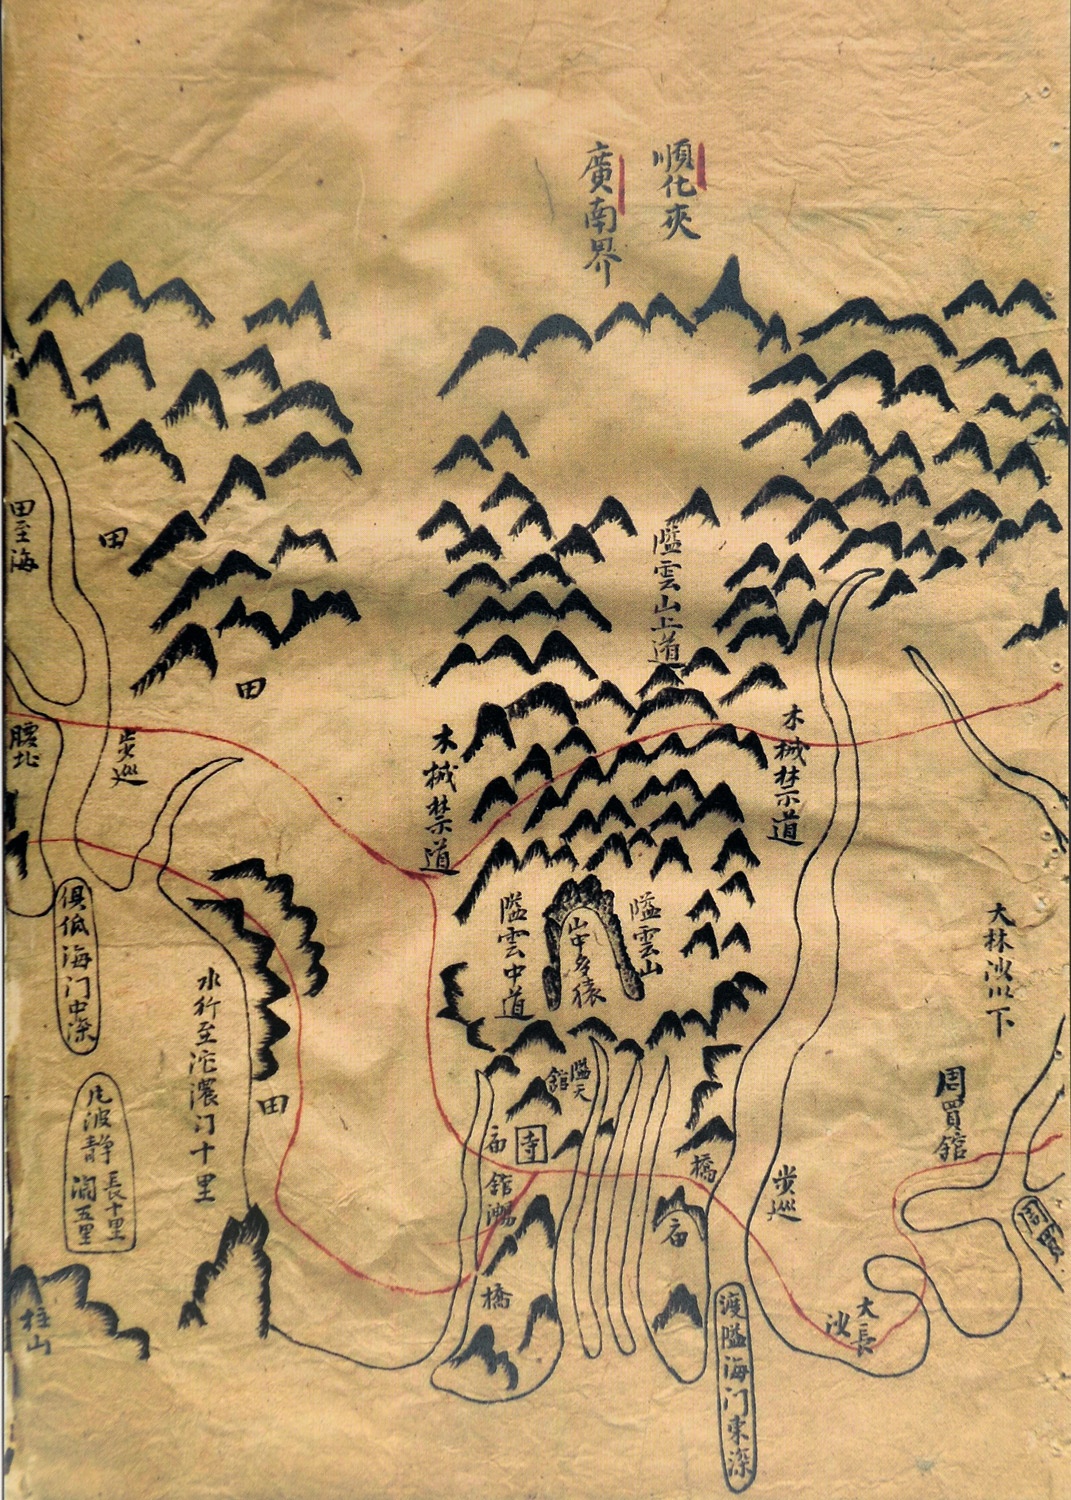 順化夾
廣南界
隘雲山上道
木械禁道
木械禁道
隘雲山
隘雲中道
山中多猿
大林沙以下
周買舘
周買
步巡
大長沙
渡隘海门東深
橋
庙
隘天
舘
寺
庙
舘
橋
田
田
田
田至海
步巡
腰北
俱低海门中深
水行至沱㶶门十里
凡波靜
長十里
濶五里
柱山